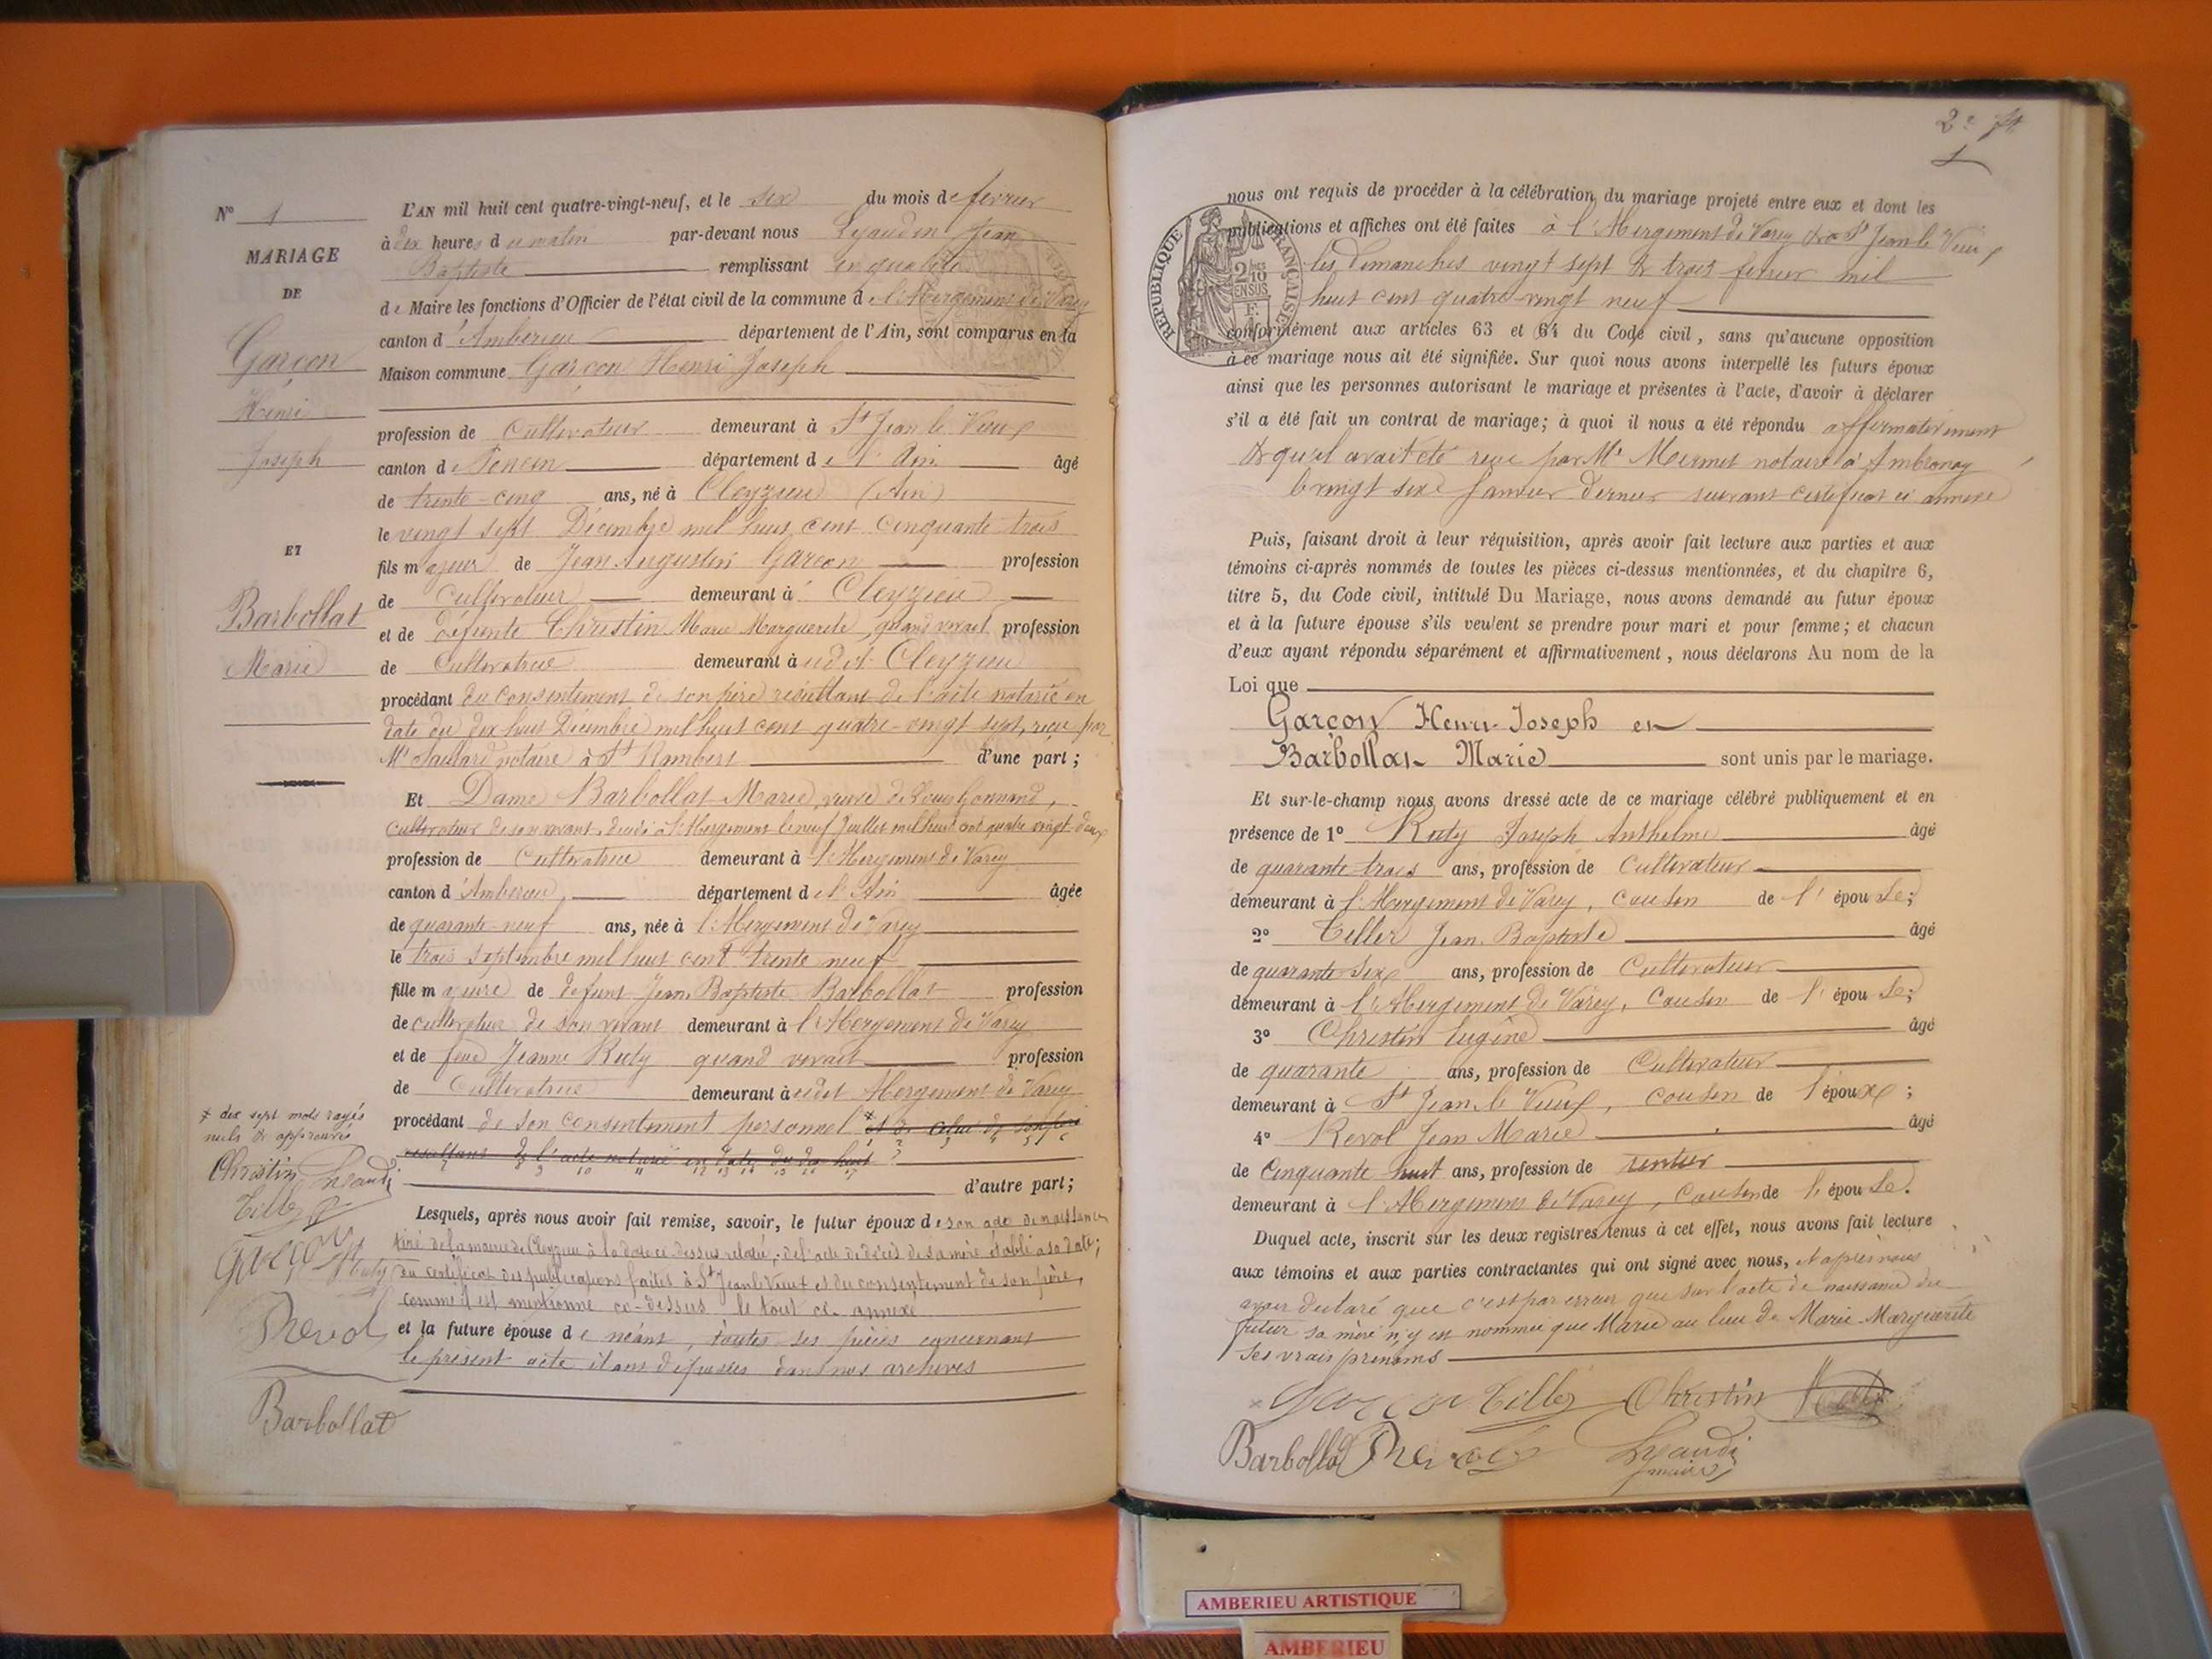 N° 1
MARIAGE
DE
Garçon
Henri
Joseph
ET
Barbollat
Marie
L'AN mil huit cent quatre-vingt-neuf, et le six du mois de fevrier
à dix heures du matin par-devant nous Lyaudin Jean
Baptiste remplissant en qualité
de Maire les fonctions d'Officier de l'état civil de la commune de l'Abergement de Varey
canton d'Amberieu département de l'Ain, sont comparus en la
Maison commune Garçon Henri Joseph
profession de Cultivateur demeurant à St Jean le Vieux
canton de Poncin département de l'Ain âgé
de trente-cinq ans, né à Cleyzieu (Ain)
le vingt sept Décembre mil huit cent cinquante trois
fils majeur de Jean Augustin Garçon profession
de Cultivateur demeurant à Cleyzieu
et de défunte Christin Marie Marguerite, quand vivait profession
de Cultivatrice demeurant à udit Cleyzieu
procédant du consentement de son père résultant de l'acte notarié en
date du dix huit Décembre mil huit cent quatre-vingt sept, reçu par
Me notaire à St Rambert d'une part ;
Et Dame Barbollat Marie, veuve de Louis Gonnand,
Cultivateur de son vivant, décédé à l'Abergement le neuf Juillet mil huit cent quatre vingt-deux
profession de Cultivatrice demeurant à l'Abergement de Varey
canton d'Amberieu département de l'Ain âgée
de quarante-neuf ans, née à l'Abergement de Varey
le trois septembre mil huit cent trente neuf
fille majeure de defunt Jean Baptiste Barbollat profession
de cultivateur de son vivant demeurant à l'Abergement de Varey
et de feue Jeanne Ruty quand vivait profession
de Cultivatrice demeurant à udit Abergement de Varey
procédant de son consentement personnel et de celui de son père
resultant de l'acte notarié en date du dix huit
1 2 3 4 5 6 7 8 9 10 11 12 13 14 15 16 17
d'autre part ;
* dix sept mots rayés
nuls & approuvés
Christin Lyaudi
Tiller
Garçon
Ruty
Revol
Barbollat
Lesquels, après nous avoir fait remise, savoir, le futur époux de son acte de naissance
tiré de la mairie de Cleyzieu à la date ci dessus relatée ; de l'acte de décès de sa mère établi a sa date ;
du certificat des publications faites à St Jean le Vieux et du consentement de son père,
comme il est mentionné ci-dessus le tout ci-annexé
et la future épouse de néant, toutes ses pièces concernant
le présent acte étant déposées dans nos archives
2e
1
nous ont requis de procéder à la célébration du mariage projeté entre eux et dont les
publications et affiches ont été faites à l'Abergement de Varey & à St Jean le Vieux,
les Dimanches vingt sept & trois fevrier mil
huit cent quatre-vingt neuf
REPUBLIQUE FRANÇAISE
2/10 EN SUS
conformément aux articles 63 et 64 du Code civil, sans qu'aucune opposition
à ce mariage nous ait été signifiée. Sur quoi nous avons interpellé les futurs époux
ainsi que les personnes autorisant le mariage et présentes à l'acte, d'avoir à déclarer
s'il a été fait un contrat de mariage ; à quoi il nous a été répondu affirmativement
& qu'il avait été reçu par Me Mermet notaire à Ambronay
le vingt six Janvier dernier suivant certificat ci annexé
Puis, faisant droit à leur réquisition, après avoir fait lecture aux parties et aux
témoins ci-après nommés de toutes les pièces ci-dessus mentionnées, et du chapitre 6,
titre 5, du Code civil, intitulé Du Mariage, nous avons demandé au futur époux
et à la future épouse s'ils veulent se prendre pour mari et pour femme ; et chacun
d'eux ayant répondu séparément et affirmativement, nous déclarons Au nom de la
Loi que
Garçon Henri-Joseph et
Barbollat Marie sont unis par le mariage.
Et sur-le-champ nous avons dressé acte de ce mariage célébré publiquement et en
présence de 1° Ruty Joseph Anthelme âgé
de quarante trois ans, profession de Cultivateur
demeurant à l'Abergement de Varey, cousin de l'épouse ;
2° Tiller Jean Baptiste âgé
de quarante six ans, profession de Cultivateur
demeurant à l'Abergement de Varey, cousin de l'épouse ;
3° Christin Eugène âgé
de quarante ans, profession de Cultivateur
demeurant à St Jean le Vieux, cousin de l'époux ;
4° Revol Jean Marie âgé
de Cinquante huit ans, profession de rentier
demeurant à l'Abergement de Varey, cousin de l'épouse.
Duquel acte, inscrit sur les deux registres tenus à cet effet, nous avons fait lecture
aux témoins et aux parties contractantes qui ont signé avec nous, et après nous
avoir déclaré que c'est par erreur que sur l'acte de naissance du
futur sa mère n'y est nommée que Marie au lieu de Marie-Marguerite
ses vrais prénoms
Garçon Tiller Christin Ruty
Barbollat Revol Lyaudi
maire
AMBERIEU ARTISTIQUE
AMBERIEU